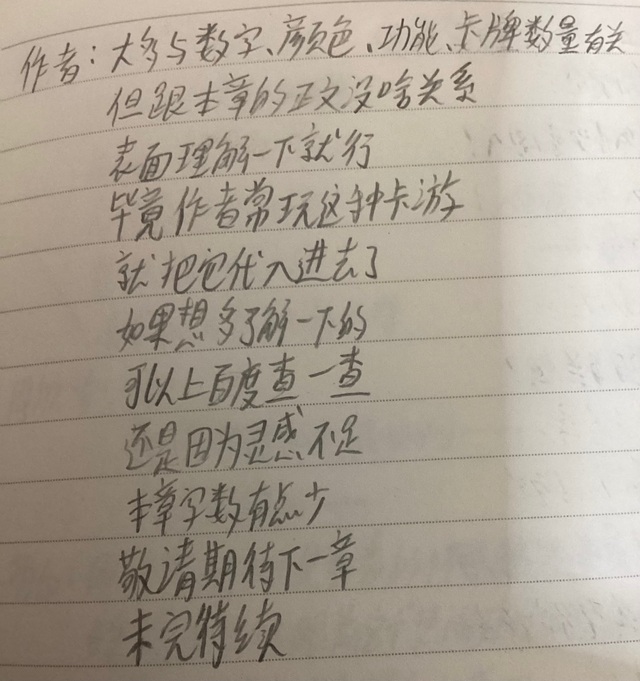 作者：大多与数字、颜色、功能、卡牌数量有关
但跟本章的正文没啥关系
表面理解一下就行
毕竟作者常玩这种卡游
就把它代入进去了
如果想多了解一下的
可以上百度查一查
还是因为灵感不足
本章字数有点少
敬请期待下一章
未完待续